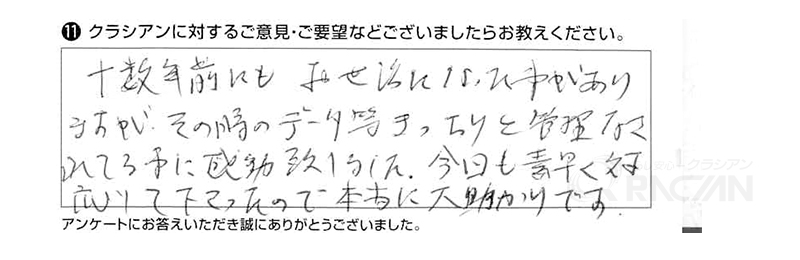 ⑪ クラシアンに対するご意見・ご要望などございましたらお教えください。
十数年前にも お世話になった事があり
ますが、その時のデータ等きっちりと管理なさ
れてる事に感動致しました。今回も素早く対
応して下さったので本当に大助かりです。
アンケートにお答えいただき誠にありがとうございました。
クラシアン